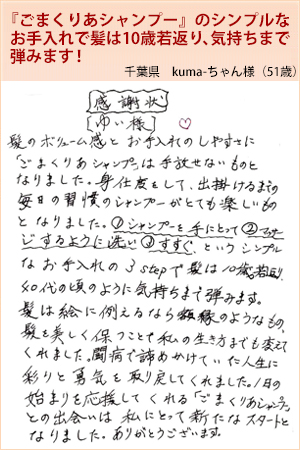 『ごまくりあシャンプー』のシンプルな
お手入れで髪は10歳若返り、気持ちまで
弾みます！
千葉県 kuma-ちゃん様（51歳）
感謝状
ゆい様
髪のボリューム感とお手入れのしやすさに
「ごまくりあシャンプ」は手放せないものと
なりました。身仕度をして、出掛けるまでの
毎日の習慣のシャンプーがとても楽しいもの
となりました。①シャンプーを手にとって②マッサー
ジするように洗い③すすぐ、というシンプル
なお手入れの3stepで髪は10歳若返り
40代の頃のように気持ちまで弾みます。
髪は絵に例えるなら額縁のようなもの、
髪を美しく保つことで私の生き方までも変えて
くれました。闘病で諦めかけていた人生に
彩りと勇気を取り戻してくれました。1日の
始まりを応援してくれる「ごまくりあシャンプ」
との出会いは私にとって新たなスタートと
なりました。ありがとうございます。